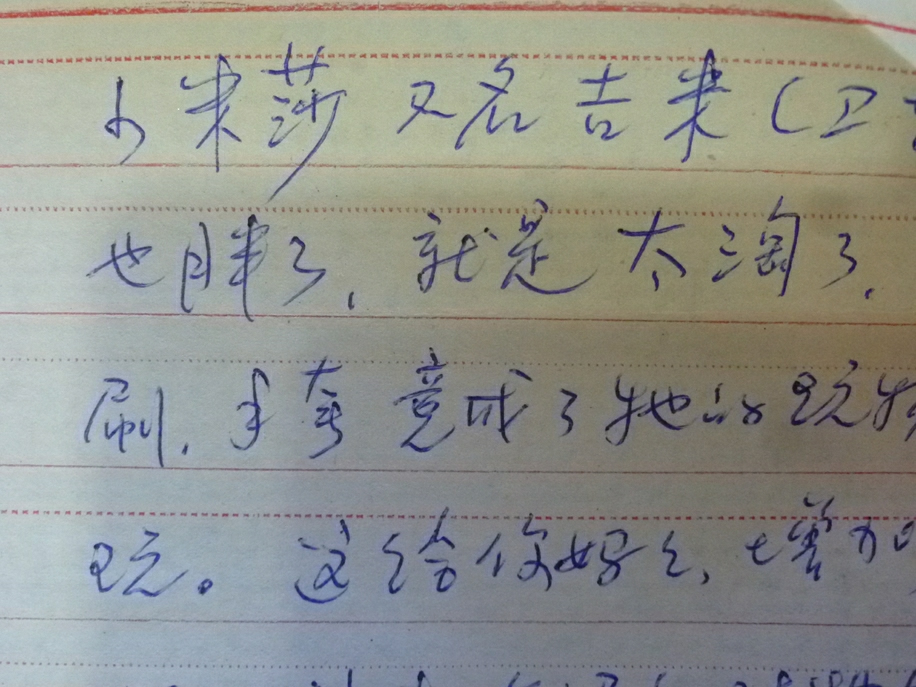 小米莎又名吉米(卫
也胖了,就是太淘了,
刷,手套竟成了牠的玩物
玩。这给你好么,增加